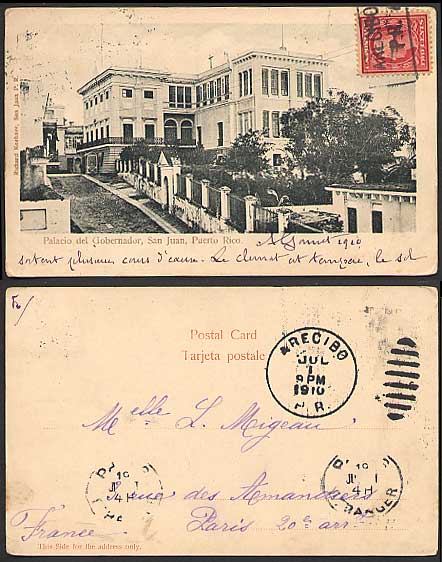 Richard Kochner, San Juan P. R.
Palacio del Gobernador, San Juan, Puerto Rico.
1910
sortent plusieurs cours d'eau. Le climat est tempéré, le sol
Postal Card
Tarjeta postale
ARECIBO
JUL
1
9 PM
1910
P.R.
Melle L. Migeau
rue des Amandiers
Paris 20e arr
France
This Side for the address only.